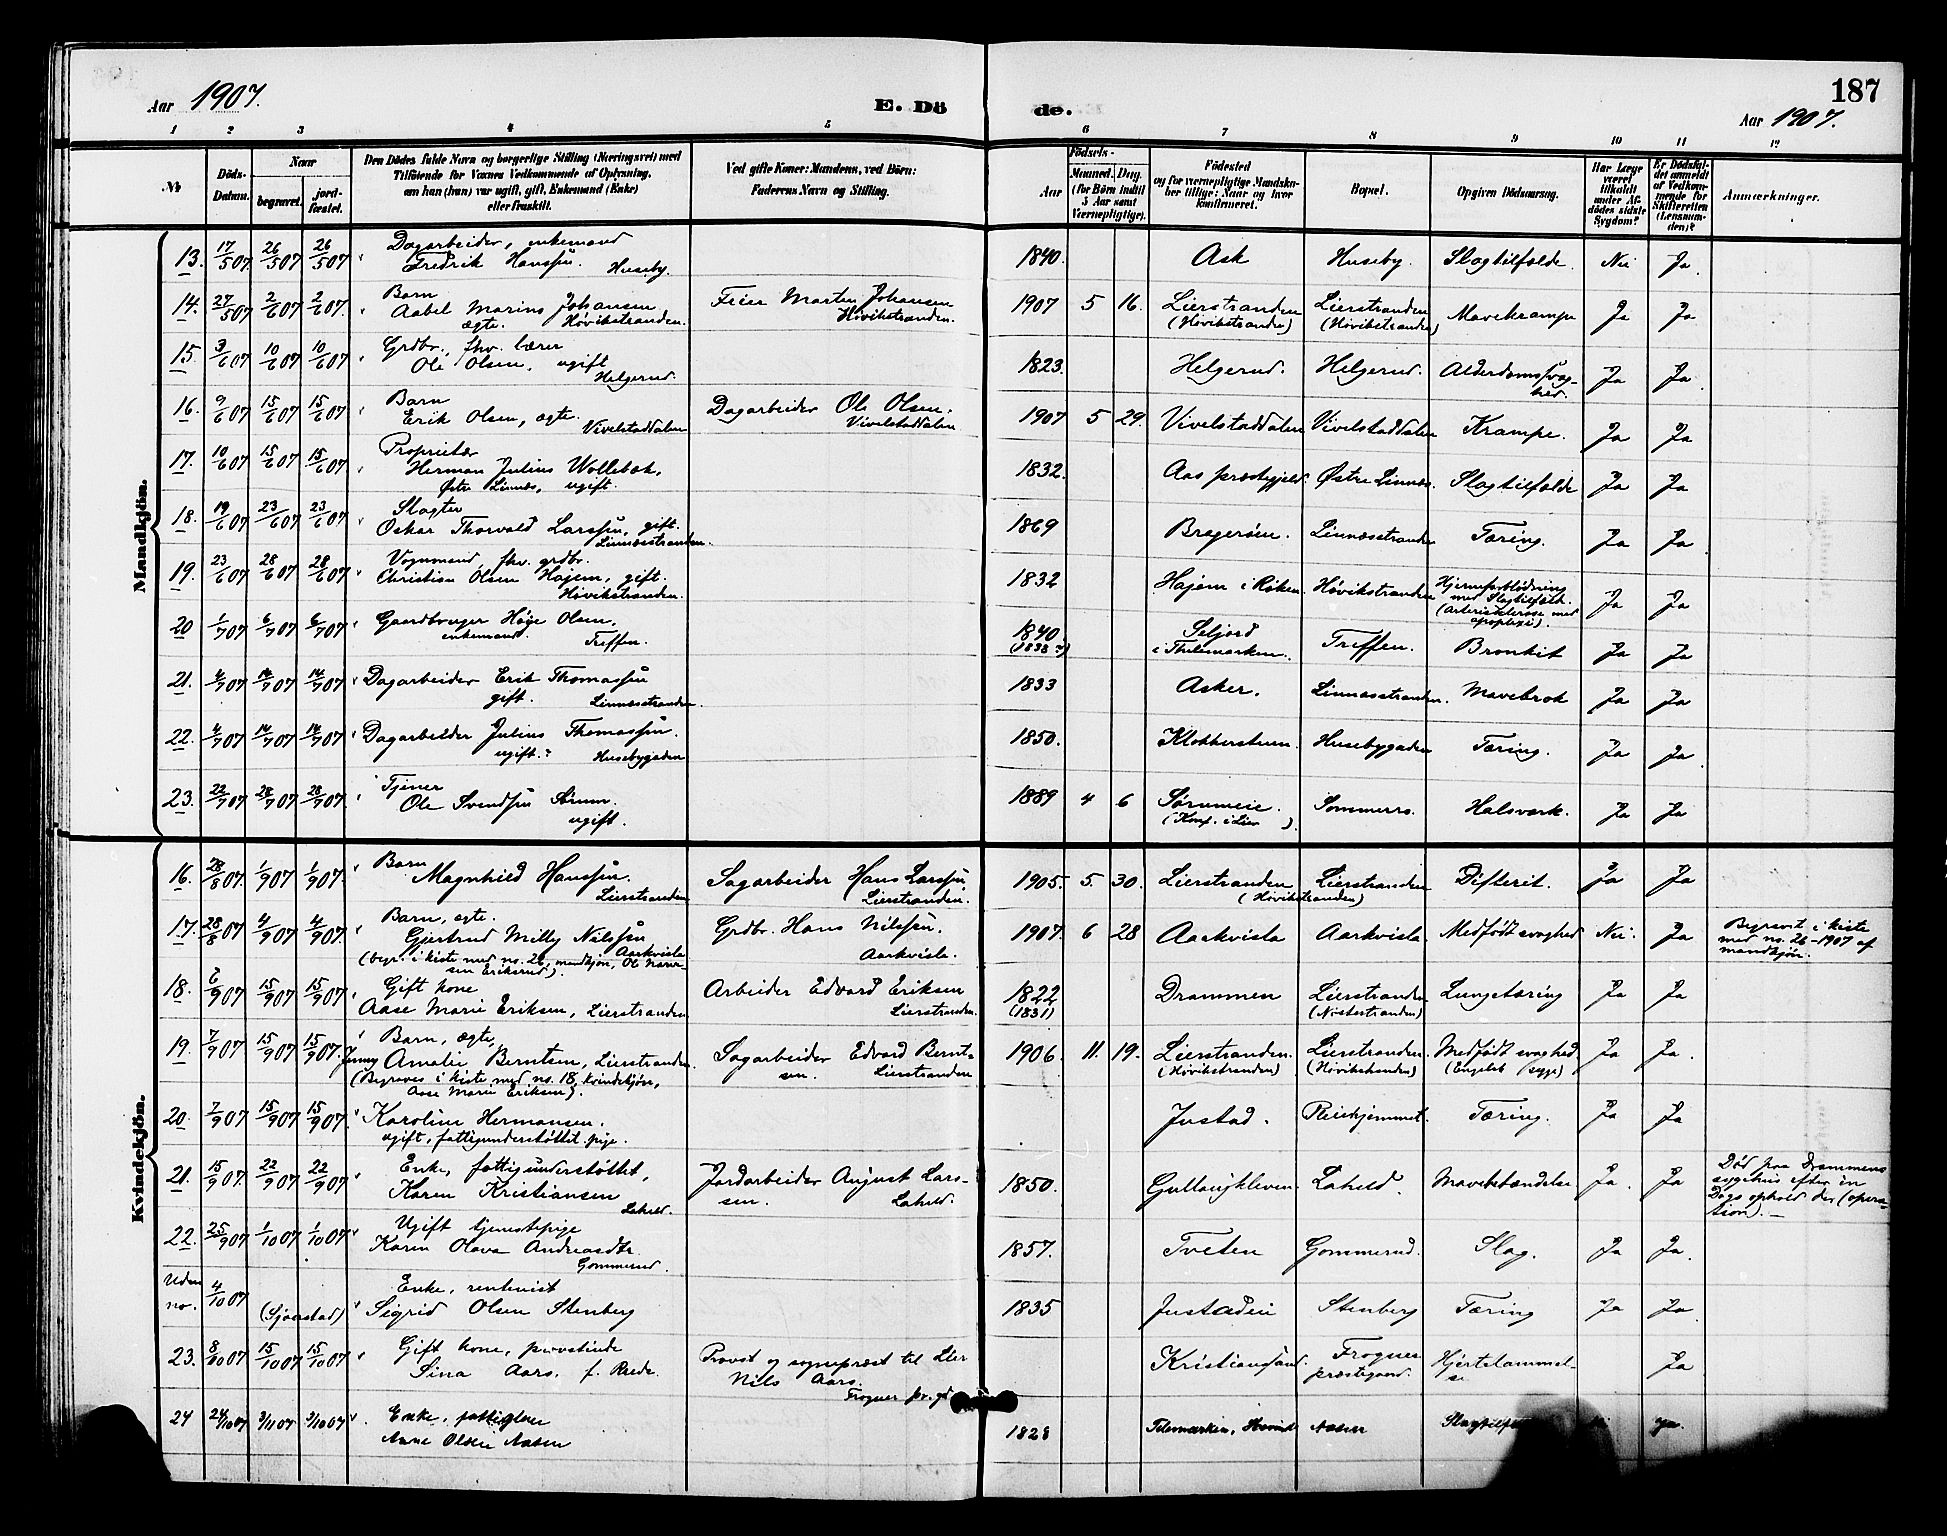 Aar 1907.
E. Dö
de.
187
Aar 1907.
1 2 3 4 5 6 7 8 9 10 11 12
№
Döds-
Datum.
Naar
begravet.
jord-
fæstet.
Den Dödes fulde Navn og borgerlige Stilling (Næringsvei) med
Tilföiende for Voxnes Vedkommende af Oplysning,
om han (hun) var ugift, gift, Enkemand (Enke)
eller fraskilt.
Ved gifte Koner: Mandens, ved Börn:
Faderens Navn og Stilling.
Födsels-
Aar
Maaned. Dag.
(for Börn indtil
5 Aar samt
Værnepligtige).
Födested
og for værnepligtige Mandskaber tillige: Naar og hvor
konfirmeret.
Bopæl.
Opgiven Dödsaarsag.
Har Læge
været
tilkaldt
under Afdödes sidste
Sygdom?
Er Dödsfaldet anmeldt
af Vedkommende for
Skifteretten
(Lensmanden)?
Anmærkninger.
Mandkjön.
13. 17/5 07 26/5 07 26/5 07 Dagarbeider, enkemand
Fredrik Hanssen. Huseby.
1840. Ask Huseby. Slagtilfælde. Nei Ja.
14. 27/5 07 2/6 07 2/6 07. Barn
Aabel Marius Johansen
ægte. Høvikstranden.
Feier Morten Johansen
Høvikstranden.
1907 5 16. Lierstranden Lierstranden Mavekrampe Ja Ja
(Høvikstranden) (Høvikstranden)
15. 3/6 07 10/6 07 10/6 07 Grdbr., fhv. lærer
Ole Olsen, ugift
Helgerud.
1823. Helgerud. Helgerud. Alderdomssvag-
hed. Ja Ja.
16. 9/6 07 15/6 07 15/6 07 Barn
Erik Olsen, ægte.
Vivelstaddalen
Dagarbeider Ole Olsen.
Vivelstaddalen
1907 5 29. Vivelstaddalen Vivelstaddalen Krampe. Ja Ja
17. 10/6 07 15/6 07 15/6 07 Proprietær
Herman Julius Wollebæk,
Østre Linnæs, ugift.
1832. Aas præstegjeld Østre Linnæs. Slagtilfælde Ja Ja
18. 19/6 07 23/6 07 23/6 07 Slagter
Oskar Thorvald Larssen, gift.
Linnæsstranden.
1869 Bragerøen. Linnæsstranden Tæring. Ja Ja
19. 23/6 07 28/6 07 28/6 07 Vognmand, fhv. grdbr.
Christian Olsen Hajem, gift.
Høvikstranden.
1832 Hajem i Røken Høvikstranden Hjerneforblødning
med Slagtilfæld.
(Arteriosclerose med
apoplexi). Ja Ja
20 1/7 07 6/7 07 6/7 07 Gaardbruger Høje Olsen,
enkemand. Treffen.
1840 Seljord Treffen. Bronkit Ja Ja
(1838?) i Thelemarken.
21. 4/7 07 14/7 07 14/7 07 Dagarbeider Erik Thomassen
gift. Linnæsstranden.
1833 Asker. Linnæsstranden. Mavebrok Ja Ja
22. 4/7 07 14/7 07 14/7 07 Dagarbeider Julius Thomassen.
ugift.? Husebygaden
1850. Klokkerstuen. Husebygaden Tæring. Ja Ja
23. 22/7 07 28/7 07 28/7 07 Tjener
Ole Svendsen Sørum.
ugift.
1889 4 6 Sørumeie. Sommerro. Halsværk. Ja Ja
(Konf. i Lier).
Kvindekjön.
16. 28/8 07. 1/9 07 1/9 07. Barn
Magnhild Hanssen.
Lierstranden
Sagarbeider Hans Larssen,
Lierstranden.
1905. 5. 30. Lierstranden Lierstranden Difterit. Ja Ja
(Høvikstranden)
17. 28/8 07 4/9 07 4/9 07. Barn, ægte.
Gjertrud Milly Nilssen
Aarkvisla
(begr. i kiste med no. 26, mandkjøn, Ole
sen Eriksrud).
Grdbr. Hans Nilssen.
Aarkvisla.
1907. 6 28 Aarkvisla Aarkvisla. Medfødt svaghed Nei. Ja
Begravet i kiste
med no. 26-1907 af
mandkjøn.
18. 6/9 07 15/9 07 15/9 07 Gift kone
Aase Marie Eriksen, Lierstranden
Arbeider Edvard Eriksen
Lierstranden.
1822 Drammen Lierstranden Lungetæring Ja Ja
(1831) (Nøstestranden)
19. 7/9 07 15/9 07 15/9 07. Barn, ægte,
Jenny Amalie Berntsen, Lierstranden
(Begraves i kiste med no. 18, kvindekjøn,
Aase Marie Eriksen).
Sagarbeider Edvard Bernt-
sen. Lierstranden
1906. 11. 19. Lierstranden. Lierstranden. Medfødt svaghed Ja Ja.
(Høvikstranden) (Høvikstranden) (Engelsk syge)
20. 7/9 07 15/9 07 15/9 07 Karoline Hermansen.
ugift, fattigunderstøttet pige.
Justad. Pleiehjemmet. Tæring. Ja Ja
21. 15/9 07. 22/9 07 22/9 07 Enke, fattigunderstøttet,
Karen Kristiansen
Lahell.
Jordarbeider August Lars-
sen. Lahell.
1850. Gullaugkleven. Lahell. Mavebetændelse Ja. Ja
Død paa Drammens
sygehus efter en
Dags ophold der (opera-
tion).
22. 25/9 07 1/10 07 1/10 07 Ugift tjenestepige
Karen Olava Andreasdtr.
Gommerud.
1857. Tveten Gommerud. Slag. Ja Ja.
Uden
no. 4/10 07 (Sjaastad) Enke, rentenist
Sigrid Olsen Stenberg
1835 Justadeie Stenberg Tæring Ja Ja.
23. 8/10 07 15/10 07 15/10 07 Gift kone, provstinde
Sina Aars, f. Rude.
Provst og sognepræst til Lier
Nils Aars.
Frogner pr.gd.
Kristiansand. Frogner
præstegaard. Hjertelammel-
se Ja
24 24/10 07 3/11 07 3/11 07 Enke, fattiglem
Anne Olsen Aasen
1828 Telemarken, Aasen Ja.